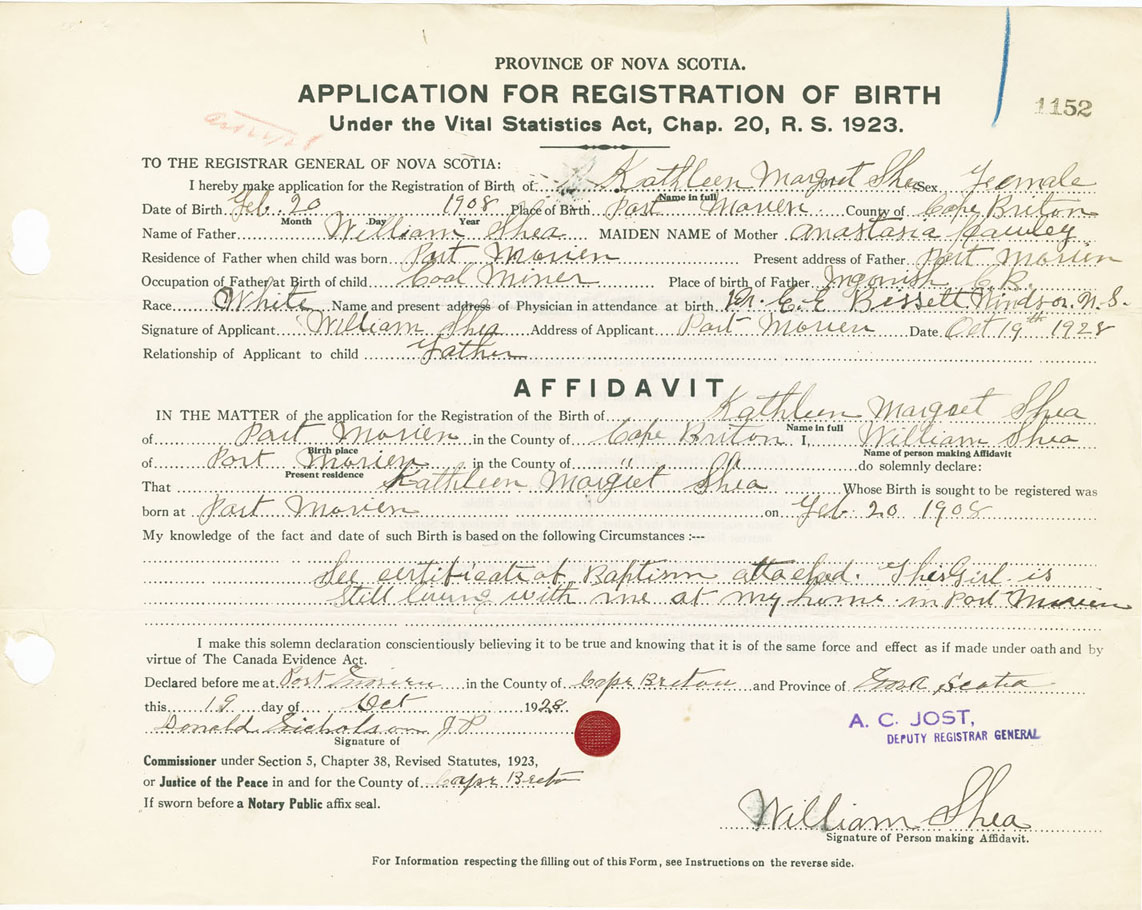 PROVINCE OF NOVA SCOTIA.
APPLICATION FOR REGISTRATION OF BIRTH
1152
Under the Vital Statistics Act, Chap. 20, R. S. 1923.
TO THE REGISTRAR GENERAL OF NOVA SCOTIA:
I hereby make application for the Registration of Birth of Kathleen Margret Shea Sex Female
Name in full
Date of Birth Feb. 20 1908 Place of Birth Port Morien County of Cape Briton
Month Day Year
Name of Father William Shea MAIDEN NAME of Mother Anastasia Cawley
Residence of Father when child was born Port Morien Present address of Father Port Morien
Occupation of Father at Birth of child Coal Miner Place of birth of Father Ingonish C.B.
Race White Name and present address of Physician in attendance at birth Dr. E. E. Bissett Windsor N.S.
Signature of Applicant William Shea Address of Applicant Port Morien Date Oct 19th 1928
Relationship of Applicant to child Father
AFFIDAVIT
IN THE MATTER of the application for the Registration of the Birth of Kathleen Margret Shea
Name in full
of Port Morien in the County of Cape Briton I, William Shea
Birth place Name of person making Affidavit
of Port Morien in the County of do solemnly declare:
Present residence
That Kathleen Margret Shea Whose Birth is sought to be registered was
born at Port Morien on Feb. 20 1908
My knowledge of the fact and date of such Birth is based on the following Circumstances :---
See certificate of Baptism attached. This Girl is
still living with me at my home in Port Morien
I make this solemn declaration conscientiously believing it to be true and knowing that it is of the same force and effect as if made under oath and by
virtue of The Canada Evidence Act.
Declared before me at Port Morien in the County of Cape Breton and Province of Nova Scotia
this 19 day of Oct 1928
Donald Nicholson J.P.
Signature of
A. C. JOST,
DEPUTY REGISTRAR GENERAL
Commissioner under Section 5, Chapter 38, Revised Statutes, 1923,
or Justice of the Peace in and for the County of Cape Breton
If sworn before a Notary Public affix seal.
William Shea
Signature of Person making Affidavit.
For Information respecting the filling out of this Form, see Instructions on the reverse side.